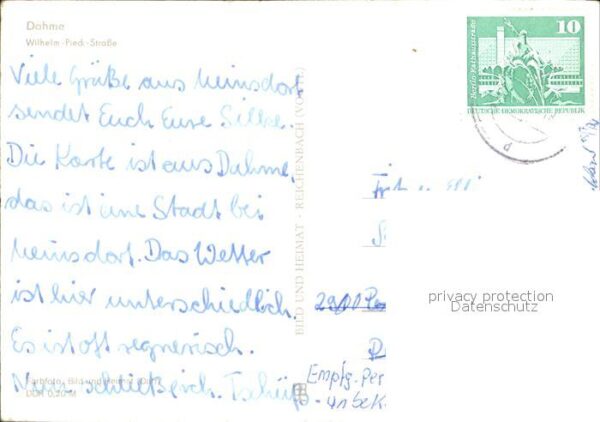 Dahme
Wilhelm-Pieck-Straße
Viele Grüße aus Meinsdorf
sendet Euch Eure Silke.
Die Karte ist aus Dahme,
das ist eine Stadt bei
Meinsdorf. Das Wetter
ist hier unterschiedlich.
Es ist oft regnerisch.
Nun schließe ich. Tschüß
Farbfoto: Bild und Heimat
DDR 0,20 M
BILD UND HEIMAT · REICHENBACH
10
Berlin-Rathausstraße
DEUTSCHE DEMOKRATISCHE REPUBLIK
privacy protection
Datenschutz
Empfg. Per
- unbek